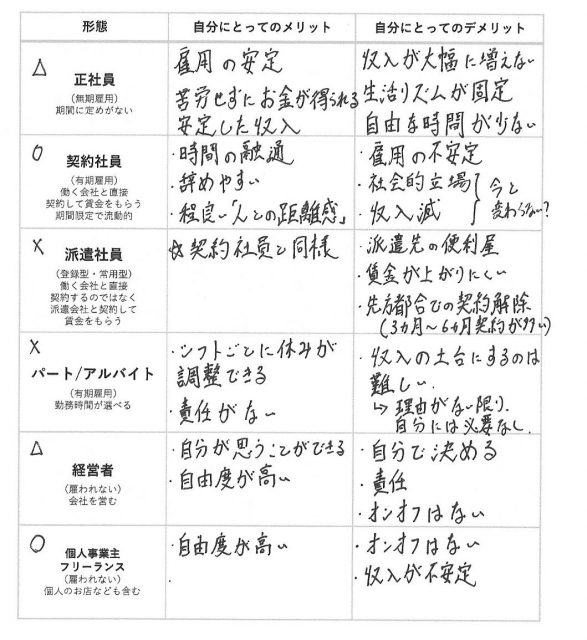 形態 自分にとってのメリット 自分にとってのデメリット
△ 正社員
(無期雇用)
期間に定めがない
雇用の安定
苦労せずにお金が得られる
安定した収入
収入が大幅に増えない
生活リズムが固定
自由な時間が少ない
○ 契約社員
(有期雇用)
働く会社と直接
契約して賃金をもらう
期間限定で流動的
・時間の融通
・辞めやすい
・程良い「人との距離感」
・雇用の不安定
・社会的立場
・収入減
今と
変わらない?
× 派遣社員
(登録型・常用型)
働く会社と直接
契約するのではなく
派遣会社と契約して
賃金をもらう
☆契約社員と同様
・派遣先の便利屋
・賃金が上がりにくい
・先方都合での契約解除
(3ヵ月〜6ヵ月契約が多い)
×
パート/アルバイト
(有期雇用)
勤務時間が選べる
・シフトごとに休みが
調整できる
・責任がない
・収入の土台にするのは
難しい.
↳理由がない限り、
自分には必要なし.
△
経営者
(雇われない)
会社を営む
・自分が思うことができる
・自由度が高い
・自分で決める
・責任
・オンオフはない
○
個人事業主
フリーランス
(雇われない)
個人のお店なども含む
・自由度が高い
・
・オンオフはない
・収入が不安定